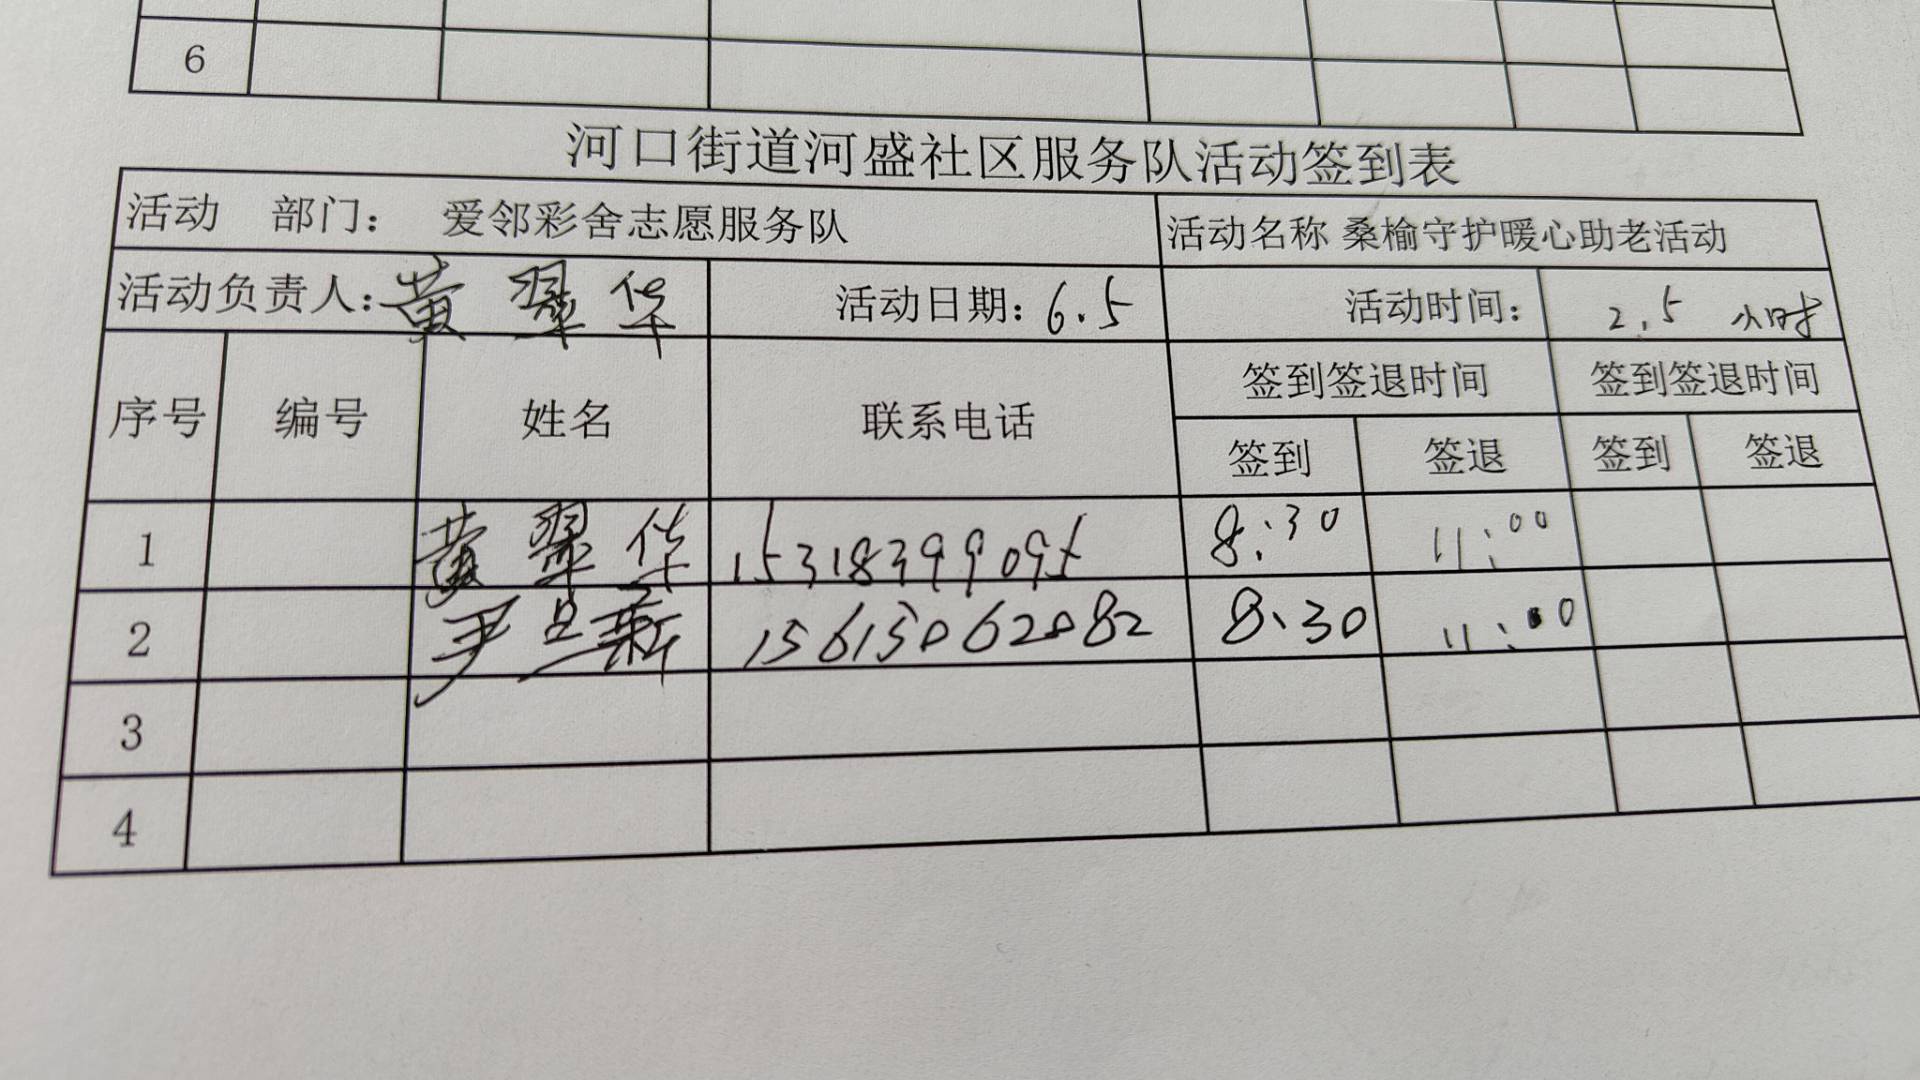 6
河口街道河盛社区服务队活动签到表
活动 部门： 爱邻彩舍志愿服务队 活动名称 桑榆守护暖心助老活动
活动负责人：黄翠华 活动日期：6.5 活动时间： 2.5 小时
序号 编号 姓名 联系电话 签到签退时间 签到签退时间
签到 签退 签到 签退
1 黄翠华 15318399095 8:30 11:00
2 尹兰新 15615062082 8:30 11:00
3
4